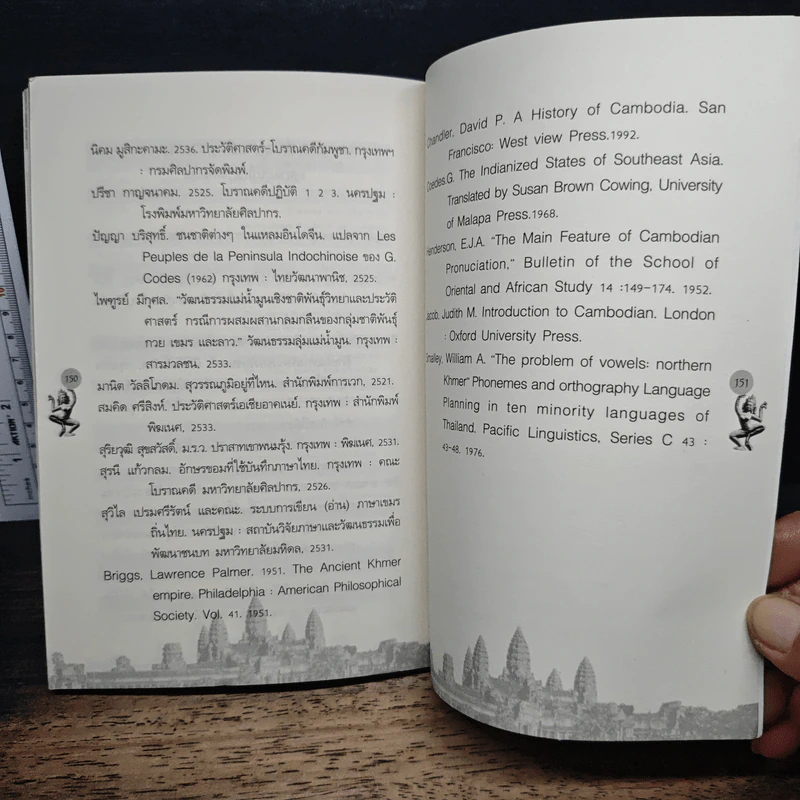 นิคม มูสิกะคามะ. 2536. ประวัติศาสตร์-โบราณคดีกัมพูชา. กรุงเทพฯ
: กรมศิลปากรจัดพิมพ์.
ปรีชา กาญจนาคม. 2525. โบราณคดีปฏิบัติ 1 2 3. นครปฐม :
โรงพิมพ์มหาวิทยาลัยศิลปากร.
ปัญญา บริสุทธิ์. ชนชาติต่างๆ ในแหลมอินโดจีน. แปลจาก Les
Peuples de la Peninsula Indochinoise ของ G.
Codes (1962) กรุงเทพ : ไทยวัฒนาพานิช, 2525.
ไพฑูรย์ มีกุศล. "วัฒนธรรมแม่น้ำมูนเชิงชาติพันธุ์วิทยาและประวัติ
ศาสตร์ กรณีการผสมผสานกลมกลืนของกลุ่มชาติพันธุ์
กวย เขมร และลาว." วัฒนธรรมลุ่มแม่น้ำมูน. กรุงเทพ :
สารมวลชน, 2533.
มานิต วัลลิโภดม. สุวรรณภูมิอยู่ที่ไหน. สำนักพิมพ์การเวก, 2521.
สมคิด ศรีสิงห์. ประวัติศาสตร์เอเชียอาคเนย์. กรุงเทพ : สำนักพิมพ์
พิฆเนศ, 2533.
สุริยวุฒิ สุขสวัสดิ์, ม.ร.ว. ปราสาทเขาพนมรุ้ง. กรุงเทพ : พิฆเนศ, 2531.
สุรนี แก้วกลม. อักษรขอมที่ใช้บันทึกภาษาไทย. กรุงเทพ : คณะ
โบราณคดี มหาวิทยาลัยศิลปากร, 2526.
สุวิไล เปรมศรีรัตน์ และคณะ. ระบบการเขียน (อ่าน) ภาษาเขมร
ถิ่นไทย. นครปฐม : สถาบันวิจัยภาษาและวัฒนธรรมเพื่อ
พัฒนาชนบท มหาวิทยาลัยมหิดล, 2531.
Briggs, Lawrence Palmer. 1951. The Ancient Khmer
empire. Philadelphia : American Philosophical
Society. Vol. 41. 1951.
150
Chandler, David P. A History of Cambodia. San
Francisco: West view Press.1992.
Coedes.G. The Indianized States of Southeast Asia.
Translated by Susan Brown Cowing, University
of Malapa Press.1968.
Henderson, E.J.A. "The Main Feature of Cambodian
Pronuciation," Bulletin of the School of
Oriental and African Study 14 :149-174. 1952.
Jacob, Judith M. Introduction to Cambodian. London
: Oxford University Press.
Smalley, William A. "The problem of vowels: northern
Khmer" Phonemes and orthography Language
Planning in ten minority languages of
Thailand. Pacific Linguistics, Series C 43 :
43-48. 1976.
151